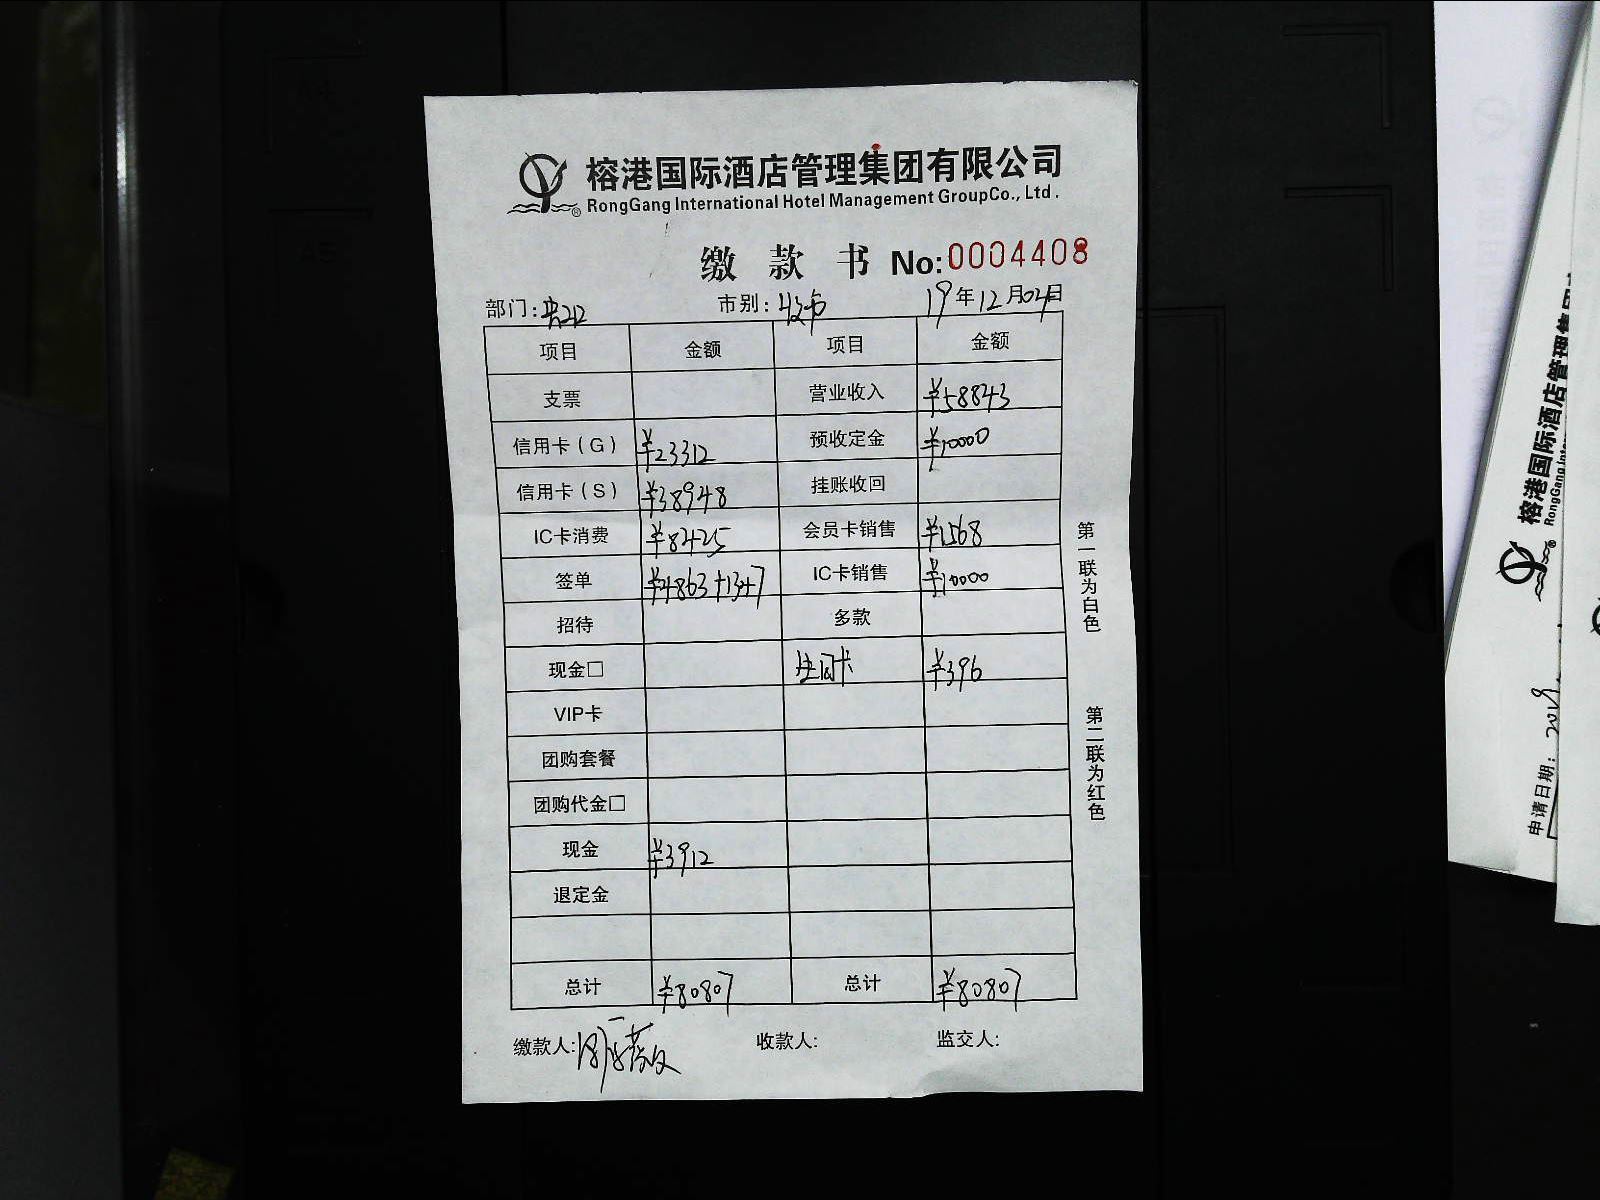 榕港国际酒店管理集团有限公司
RongGang International Hotel Management GroupCo., Ltd.
®
缴款书 No:0004408
部门: 市别: 19年12月04日
项目 金额 项目 金额
支票 营业收入 ¥58843
信用卡(G) ¥23312 预收定金 ¥10000
信用卡(S) ¥38948 挂账收回
IC卡消费 ¥8425 会员卡销售 ¥1568
签单 ¥4863+1347 IC卡销售 ¥10000
招待 多款
现金□ 卡 ¥396
VIP卡
团购套餐
团购代金□
现金 ¥3912
退定金
总计 ¥80807 总计 ¥80807
缴款人: 收款人: 监交人:
第一联为白色
第二联为红色
榕港国际酒店管理集团
RongGang Inter
®
申请日期: 2019